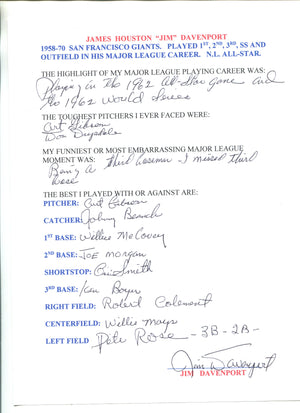 JAMES HOUSTON "JIM" DAVENPORT
1958-70 SAN FRANCISCO GIANTS. PLAYED 1ST, 2ND, 3RD, SS AND
OUTFIELD IN HIS MAJOR LEAGUE CAREER. N.L. ALL-STAR.
THE HIGHLIGHT OF MY MAJOR LEAGUE PLAYING CAREER WAS:
Playing in the 1962 All-Star Game and
the 1962 World Series
THE TOUGHEST PITCHERS I EVER FACED WERE:
Curt Gibson
Don Drysdale
MY FUNNIEST OR MOST EMBARRASSING MAJOR LEAGUE
MOMENT WAS: third baseman - I missed third
Being a
base
THE BEST I PLAYED WITH OR AGAINST ARE:
PITCHER: Curt Gibson
CATCHER: Johnny Bench
1ST BASE: Willie McCovey
2ND BASE: JOE Morgan
SHORTSTOP: Ozzie Smith
3RD BASE: Ken Boyer
RIGHT FIELD: Robert Clemente
CENTERFIELD: Willie Mays
LEFT FIELD Pete Rose - 3B - 2B -
Jim Davenport
JIM DAVENPORT